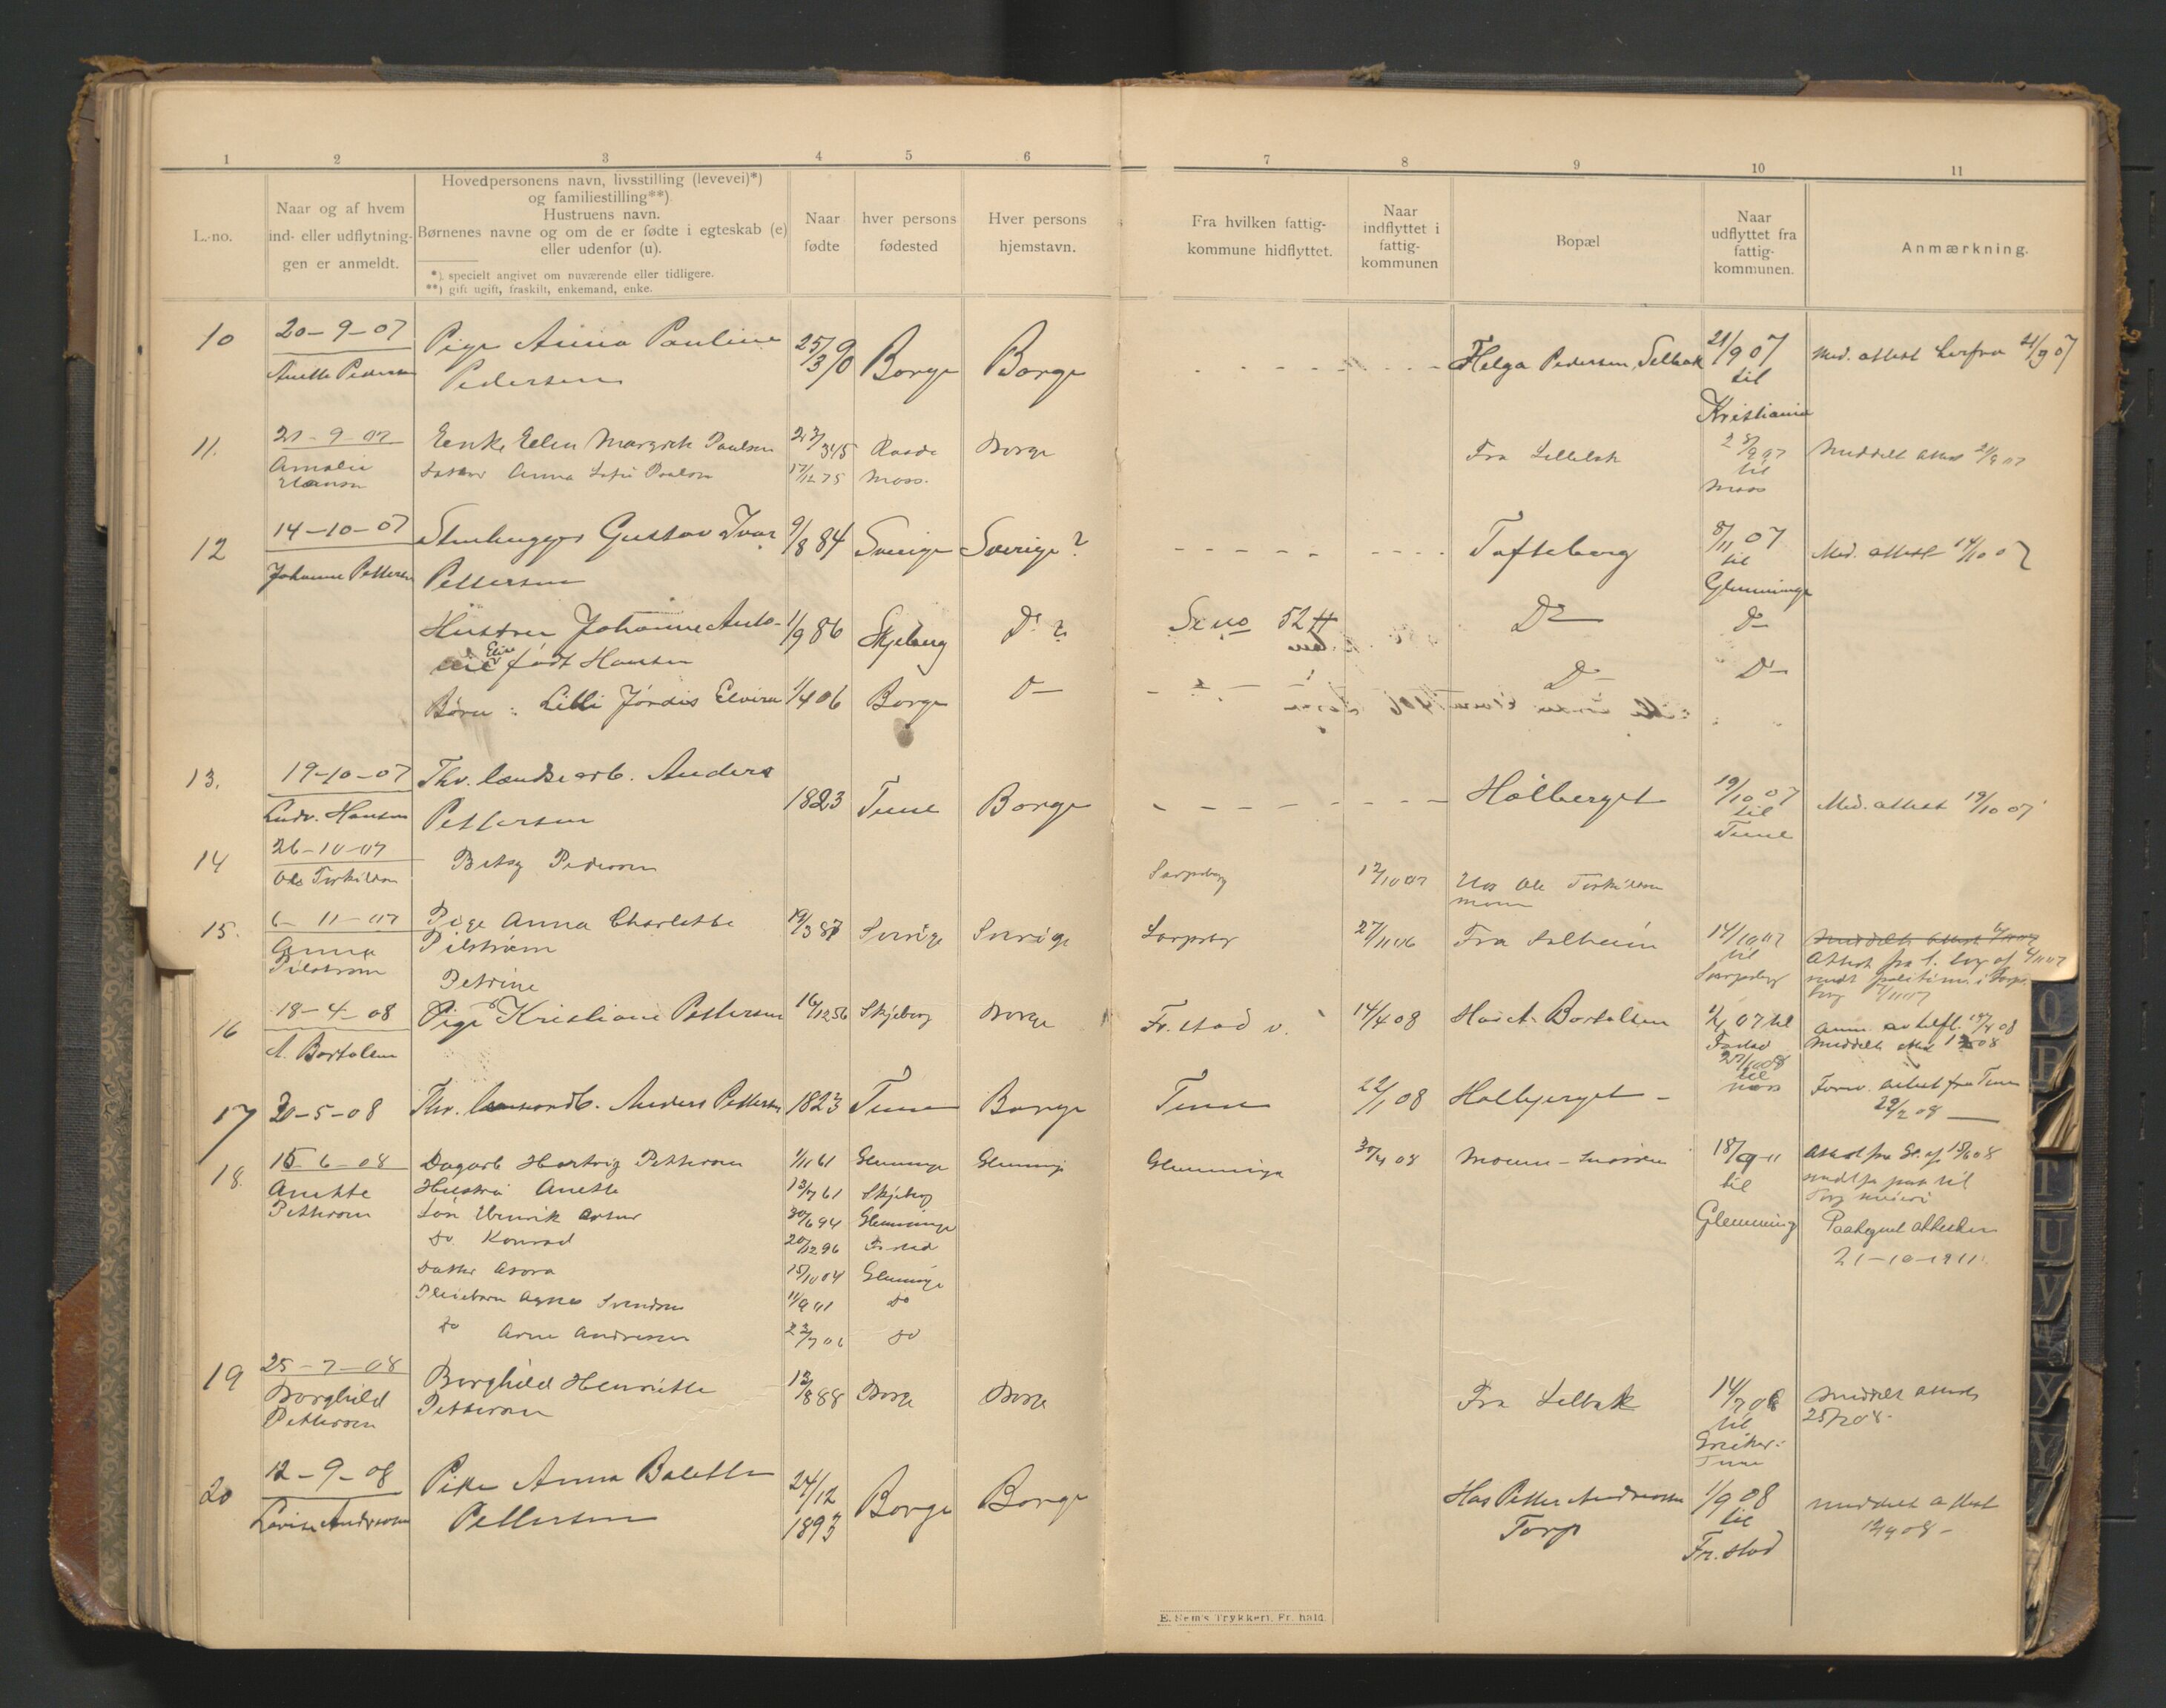 1 2 3 4 5 6 7 8 9 10 11
L.-no.
Naar og af hvem
ind- eller udflytnin-
gen er anmeldt.
Hovedpersonens navn, livsstilling (levevei)*)
og familiestilling**)
Hustruens navn.
Børnenes navne og om de er fødte i egteskab (e)
eller udenfor (u).
*) specielt angivet om nuværende eller tidligere.
**) gift ugift, fraskilt, enkemand, enke.
Naar
fødte
hver persons
fødested
Hver persons
hjemstavn.
Fra hvilken fattig-
kommune hidflyttet.
Naar
indflyttet i
fattig-
kommunen
Bopæl
Naar
udflyttet fra
fattig-
kommunen.
Anmærkning.
10 20-9-07 Pige Anna Pauline 25/3 90 Borge Borge Helga Pedersen, Selbak 21/9 07 Med. attest herfra 21/9 07
Anette Pedersen Pedersen til
Kristiania
11. 21-9-07 Enke Elen Margrete Paulsen 23/3 45 Raade Borge Fra Sellebak Meddelt attest 21/9 07
Amalie Datter Anna Sofie Paulsen 17/12 75 Moss. til
Hansen Moss
12 14-10-07 Stenhugger Gustav Ivar 9/8 84 Sverige Sverige? Tofteberg 8/11 07 Med. attest 14/10 07
Johanne Pettersen Pettersen til
Glemminge
Hustru Johanne Anto- 1/9 86 Skjeberg Do ? Se no 52 H Do Do
født Hansen
Børn: Lilli Jørdis Elvira 1/4 06 Borge Do Do Do
13. 19-10-07 Thv. lændsearb. Anders 1823 Tune Borge Holberget 19/10 07 Med. attest 19/10 07
Ludv. Hansen Pettersen til
Tune
14 26-10-07 Betsy Pedersen Sarpsborg 12/10 07 Hos Ole Torkildsen
Ole Torkildsen Moum
15. 6-11-07 Pige Anna Charlotte 19/3 87 Sverige Sverige Sarpsborg 27/11 06 Fra Solheim 14/10 07 Meddelt attest
Anna Pilstrøm til Attest fra
Pilstrøm Sarpsborg sendt politiet i Sarps-
borg
Petrine
16 18-4-08 Pige Kristiane Pettersen 16/12 56 Skjeberg Borge Fr.stad v. 14/4 08 Hos A. Bortelsen 07 til Anm. av tilfl. 08
A. Bortelsen Meddelt attest 08
til
Moss
17 30-5-08 Thv. Anders Pettersen 1823 Tune Borge Tune 22/1 08 Holbjerget - Forev. attest fra Tune
22/2 08
18. 15-6-08 Dagarb Hartvig Pettersen 1/11 61 Glemminge Glemminge Glemminge 30/4 08 Moum - 18/9 11 Attest fra Gl. af 15/6 08
Anette Hustru Anette 13/7 61 Skjeberg til
Pettersen Søn Henrik Artur 30/6 94 Glemminge Glemming Paategnet attesten
Do Konrad 20/12 96 Frstad 21-10-1911.
Datter Asora 15/10 04 Glemminge
Pleiebarn Agnes Svendsen 11/9 01 Do
Do Arne Andresen 22/7 06 Do
19 25-7-08 Borghild Henriette 13/8 88 Borge Borge Fra Selbak 14/7 08 Meddelt attest
Borghild Pettersen til 25/7 08.
Pettersen
Tune
20 12-9-08 Pike Anna Bolette 24/12 Borge Borge Hos Petter Andreassen 1/9 08 Meddelt attest
Lovise Andreassen Pettersen 1893 Torp til 12/9 08 -
Fr.stad
E. Sem's Trykkeri, Fr. hald.
O
P
T
U
V
X
Y